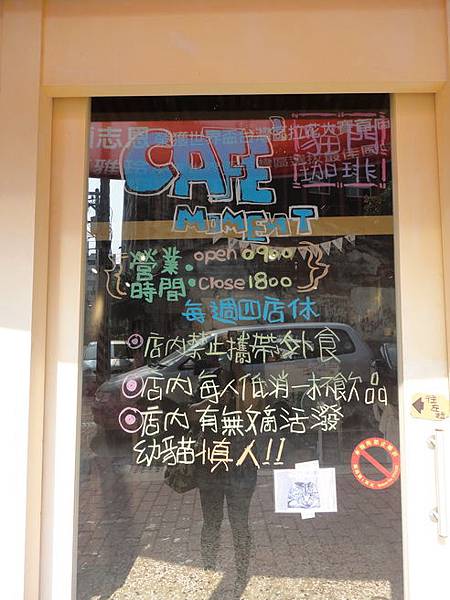 CAFE'
MOMENT
貓日
珈琲
營業 open 0900
時間 Close 1800
每週四店休
店內禁止攜帶外食
店內每人低消一杯飲品
店內有無敵活潑
幼貓慎人!!
往左拉